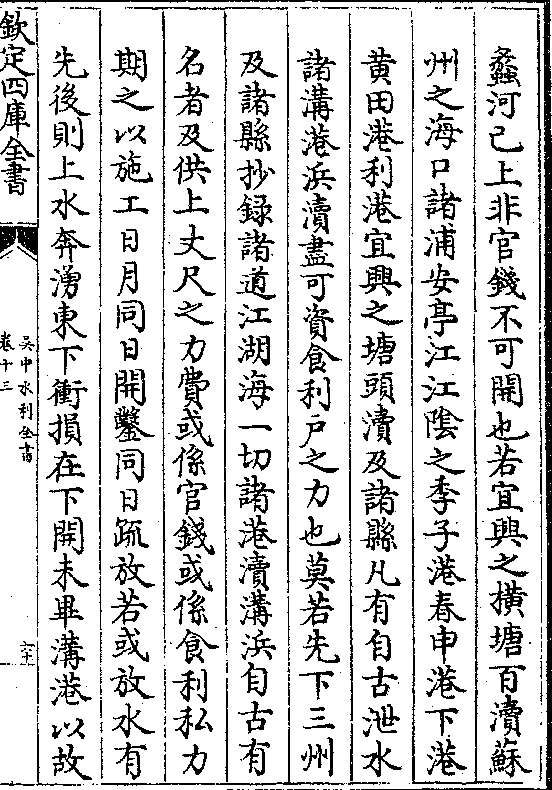 蠡河已上非官錢不可開也若宜興之橫塘百瀆蘇
州之海口諸浦安亭江江隂之季子港春申港下港
黄田港利港宜興之塘頭瀆及諸縣凡有自古泄水
諸溝港浜瀆盡可資食利戸之力也莫若先下三州
及諸縣抄録諸道江湖海一切諸港瀆溝浜自古有
名者及供上丈尺之力費或係官錢或係食利私力
期之以施工日月同日開鑿同日疏放若或放水有
先後則上水奔湧東下衝損在下開未畢溝港以故
欽定四庫全書
吳中水利全書
卷十三